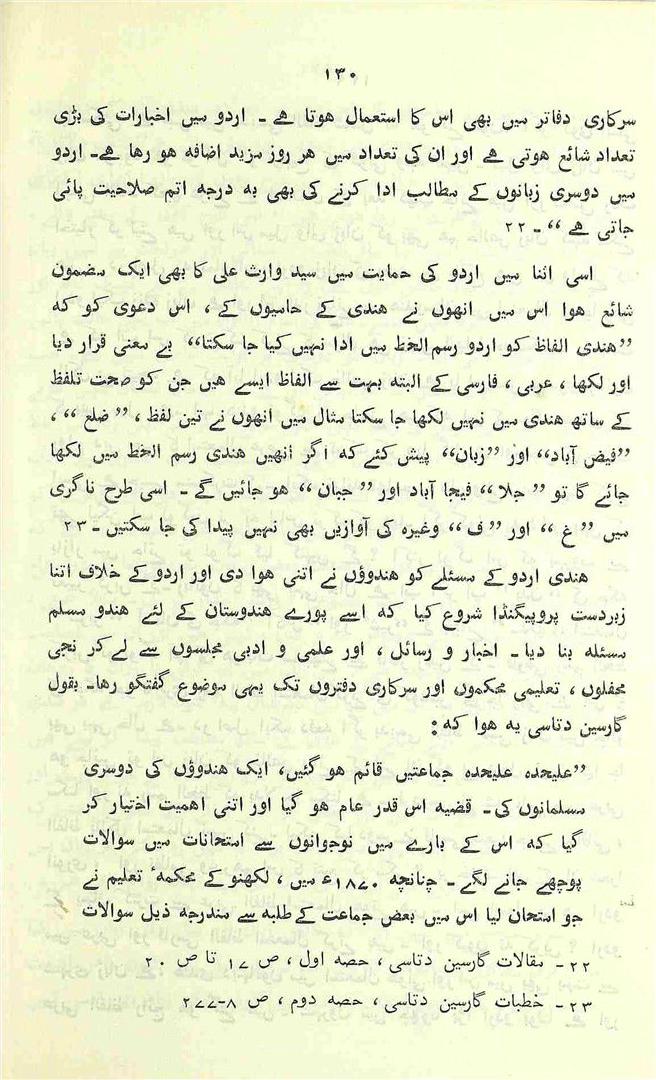 ۱۳۰
سرکاری دفاتر میں بھی اس کا استعمال ہوتا ہے ۔ اردو میں اخبارات کی بڑی
تعداد شائع ہوتی ہے اور ان کی تعداد میں ہر روز مزید اضافہ ہو رہا ہے۔ اردو
میں دوسری زبانوں کے مطالب ادا کرنے کی بھی بہ درجہ اتم صلاحیت پائی
جاتی ہے “ ۔ ۲۲
اسی اثنا میں اردو کی حمایت میں سید وارث علی کا بھی ایک مضمون
شائع ہوا اس میں انھوں نے ہندی کے حامیوں کے ، اس دعوی کو کہ
”ہندی الفاظ کو اردو رسم الخط میں ادا نہیں کیا جا سکتا“ بے معنی قرار دیا
اور لکھا ، عربی ، فارسی کے البتہ بہت سے الفاظ ایسے ہیں جن کو صحت تلفظ
کے ساتھ ہندی میں نہیں لکھا جا سکتا مثال میں انھوں نے تین لفظ ، ”ضلع “ ،
”فیض آباد“ اور ”زبان“ پیش کئے کہ اگر انھیں ہندی رسم الخط میں لکھا
جائے گا تو ” جلا “ فیجا آباد اور ” جبان “ ہو جائیں گے ۔ اسی طرح ناگری
میں ” غ “ اور ”ف “ وغیرہ کی آوازیں بھی نہیں پیدا کی جا سکتیں ۔ ۲۳
ہندی اردو کے مسئلے کو ہندوؤں نے اتنی ہوا دی اور اردو کے خلاف اتنا
زبردست پروپیگنڈا شروع کیا کہ اسے پورے ہندوستان کے لئے ہندو مسلم
مسئلہ بنا دیا ۔ اخبار و رسائل ، اور علمی و ادبی مجلسوں سے لے کر نجی
محفلوں ، تعلیمی محکموں اور سرکاری دفتروں تک یہی موضوع گفتگو رہا۔ بقول
گارسین دتاسی یہ ہوا کہ :
”علیحدہ علیحدہ جماعتیں قائم ہو گئیں، ایک ہندوؤں کی دوسری
مسلمانوں کی ۔ قضیہ اس قدر عام ہو گیا اور اتنی اہمیت اختیار کر
گیا کہ اس کے بارے میں نوجوانوں سے امتحانات میں سوالات
پوچھے جانے لگے ۔ چنانچہ ۱۸۷۰ء میں ، لکھنو کے محکمۂ تعلیم نے
جو امتحان لیا اس میں بعض جماعت کے طلبہ سے مندرجہ ذیل سوالات
۲۲ ۔ مقالات گارسین دتاسی ، حصہ اول ، ص ۱۷ تا ص ۲۰
۲۳ ۔ خطبات گارسین دتاسی ، حصہ دوم ، ص ۸-۲۷۷